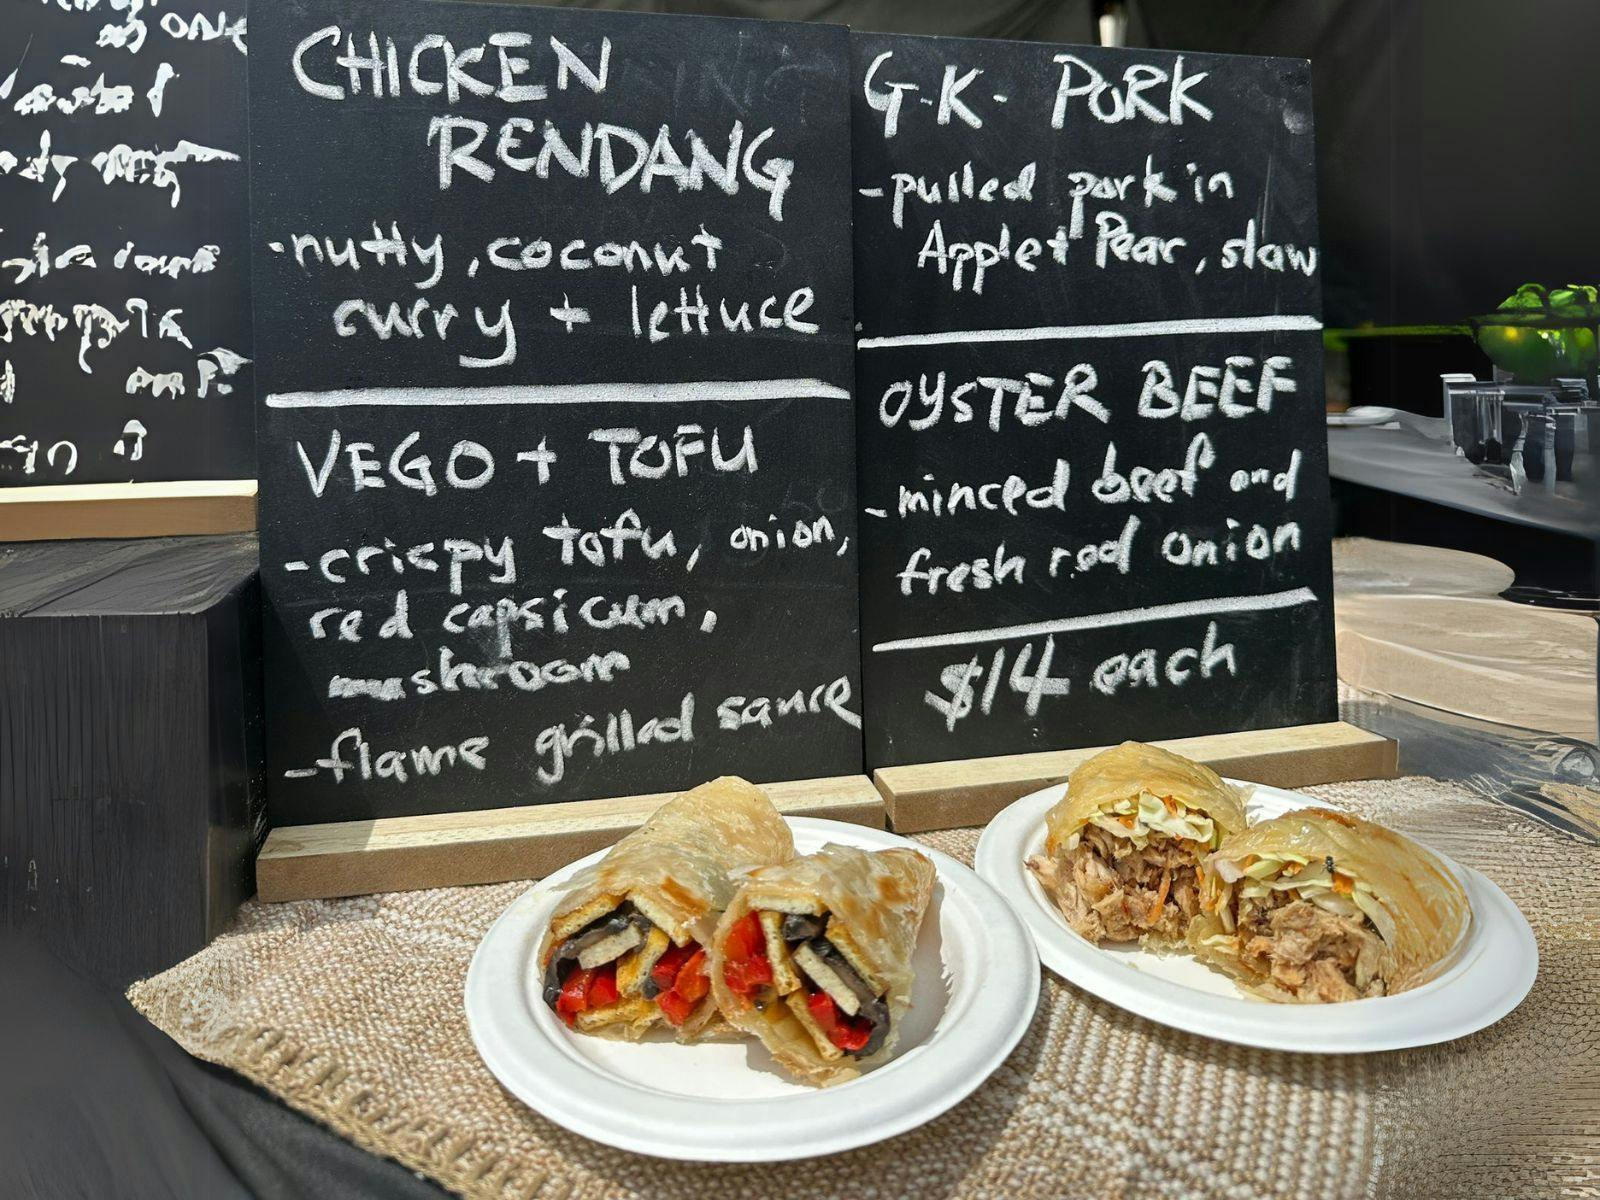 CHICKEN
RENDANG
-nutty, coconut
curry + lettuce
VEGO + TOFU
-crispy tofu, onion,
red capsicum,
mushroom
-flame grilled sauce
G.K. PORK
-pulled pork in
Apple+Pear, slaw
OYSTER BEEF
-minced beef and
fresh red onion
$14 each